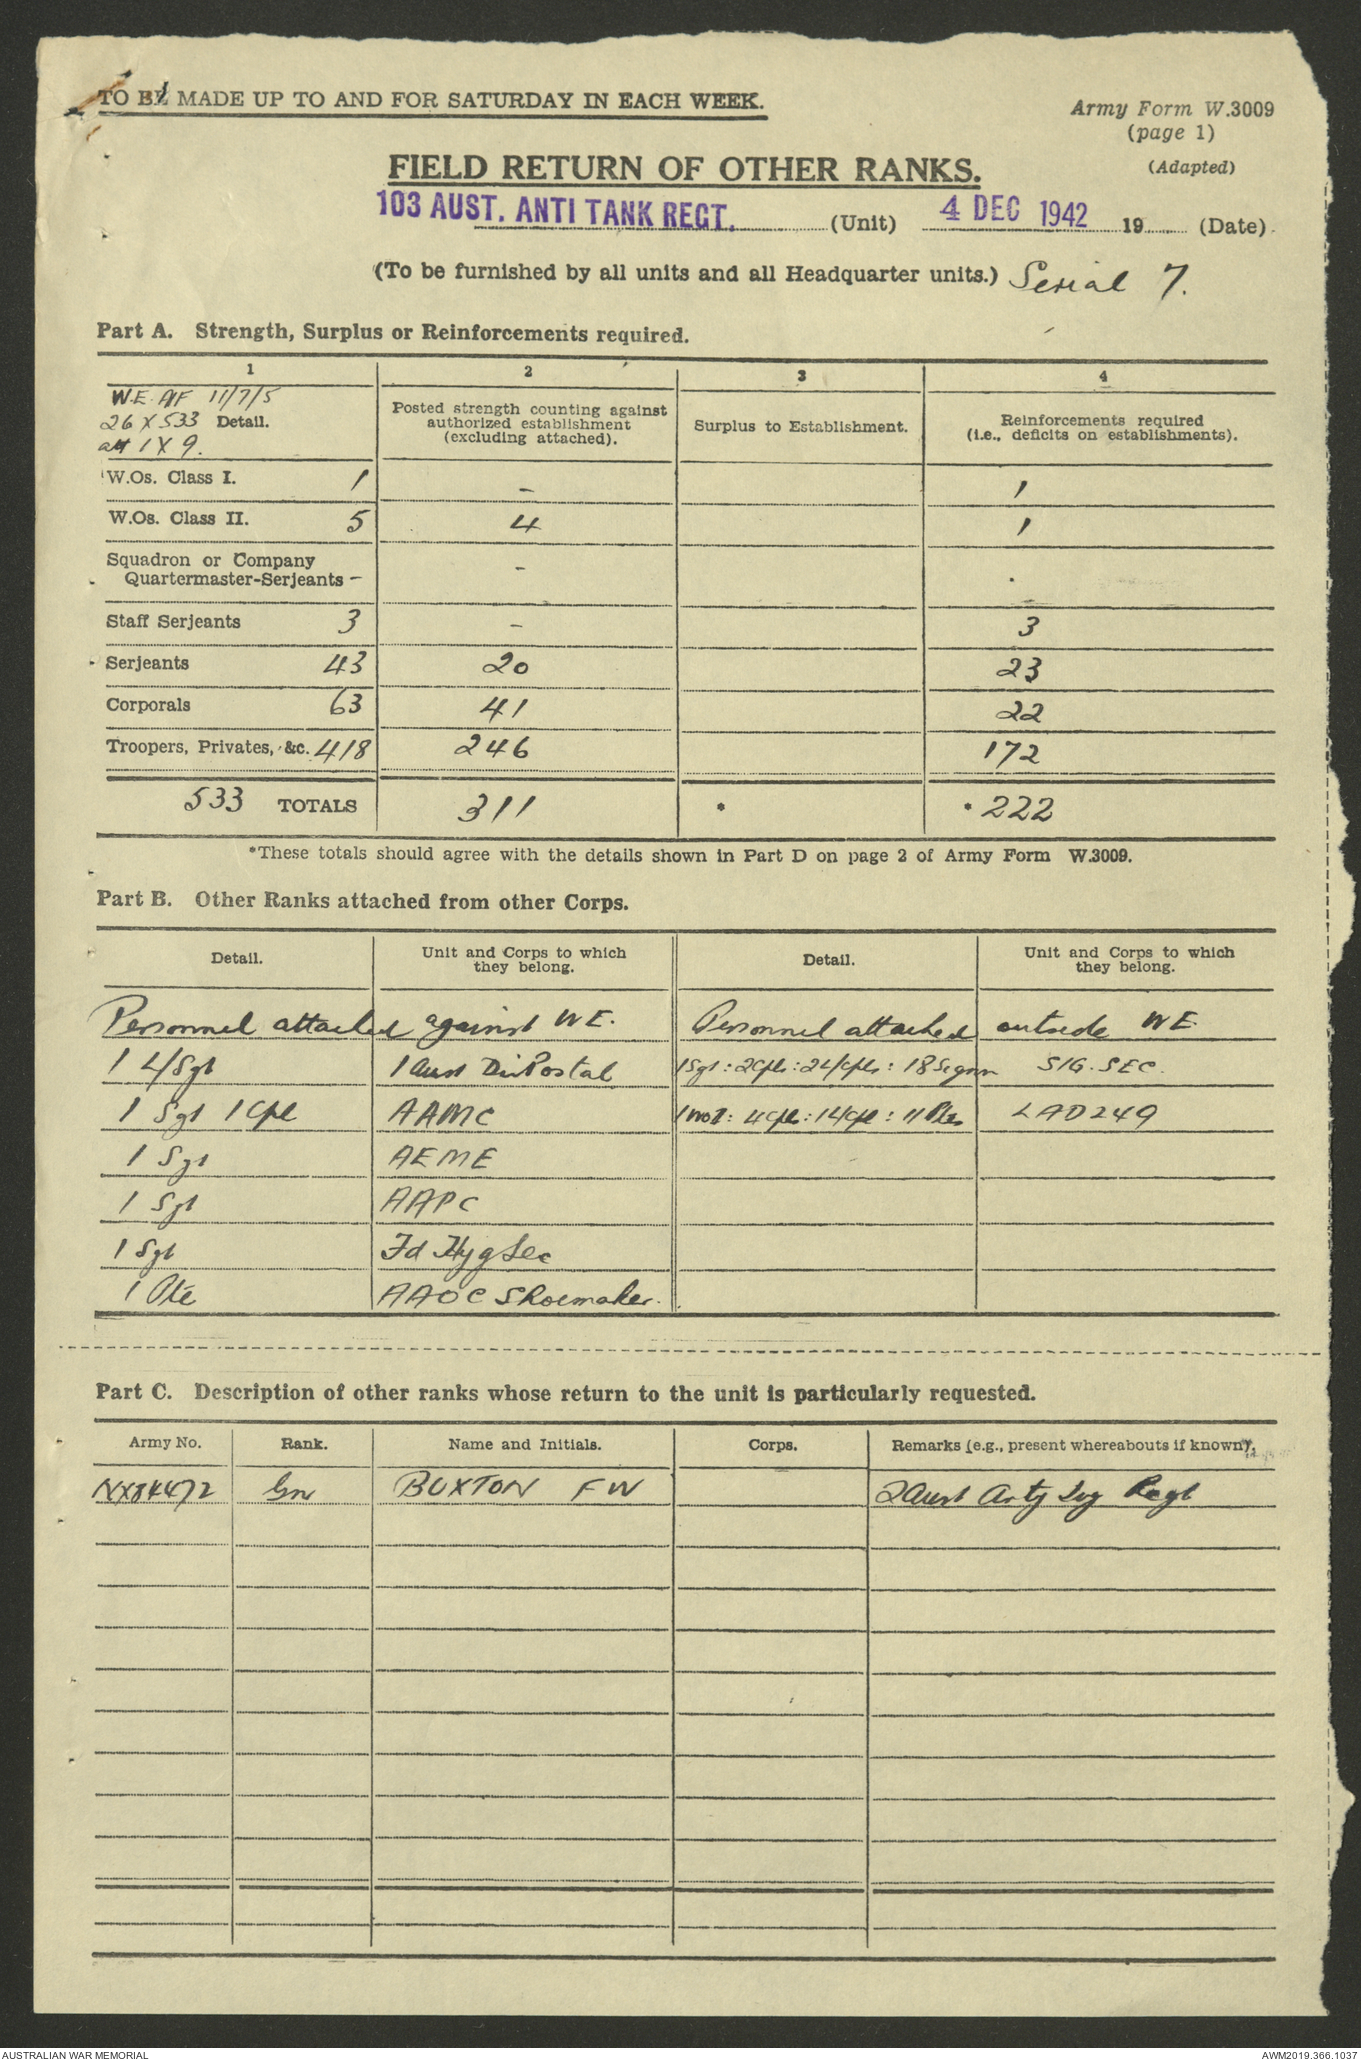 TO BE MADE UP TO AND FOR SATURDAY IN EACH WEEK.
Army Form W.3009
(page 1)
(Adapted)
FIELD RETURN OF OTHER RANKS.
103 AUST. ANTI TANK REGT. (Unit) 4 DEC 1942 19 (Date)
(To be furnished by all units and all Headquarter units.) Serial 7.
Part A. Strength, Surplus or Reinforcements required.
1 2 3 4
W.E. AIF 11/7/5
26 X 533 Detail.
att 1 X 9.
Posted strength counting against
authorized establishment
(excluding attached).
Surplus to Establishment.
Reinforcements required
(i.e., deficits on establishments).
W.Os. Class I. 1 - 1
W.Os. Class II. 5 4 1
Squadron or Company
Quartermaster-Serjeants - -
Staff Serjeants 3 - 3
Serjeants 43 20 23
Corporals 63 41 22
Troopers, Privates, &c. 418 246 172
533 TOTALS 311 * *222
*These totals should agree with the details shown in Part D on page 2 of Army Form W.3009.
Part B. Other Ranks attached from other Corps.
Detail. Unit and Corps to which
they belong. Detail. Unit and Corps to which
they belong.
Personnel attached against WE. Personnel attached outside WE
1 L/Sgt 1 Aust Div Postal 1 Sgt : 2 Cpls : 2 L/Cpls : 18 Sigmn SIG. SEC.
1 Sgt 1 Cpl AAMC 4 Cpls : 1 L/Cpl : 11 Ptes LAD 249
1 Sgt AEME
1 Sgt AAPC
1 Sgt Fd Hyg Sec
1 Pte AAOC Shoemaker.
Part C. Description of other ranks whose return to the unit is particularly requested.
Army No. Rank. Name and Initials. Corps. Remarks (e.g., present whereabouts if known).
NX84472 Gnr BUXTON F W 2 Aust Arty Trg Regt
AUSTRALIAN WAR MEMORIAL
AWM2019.366.1037